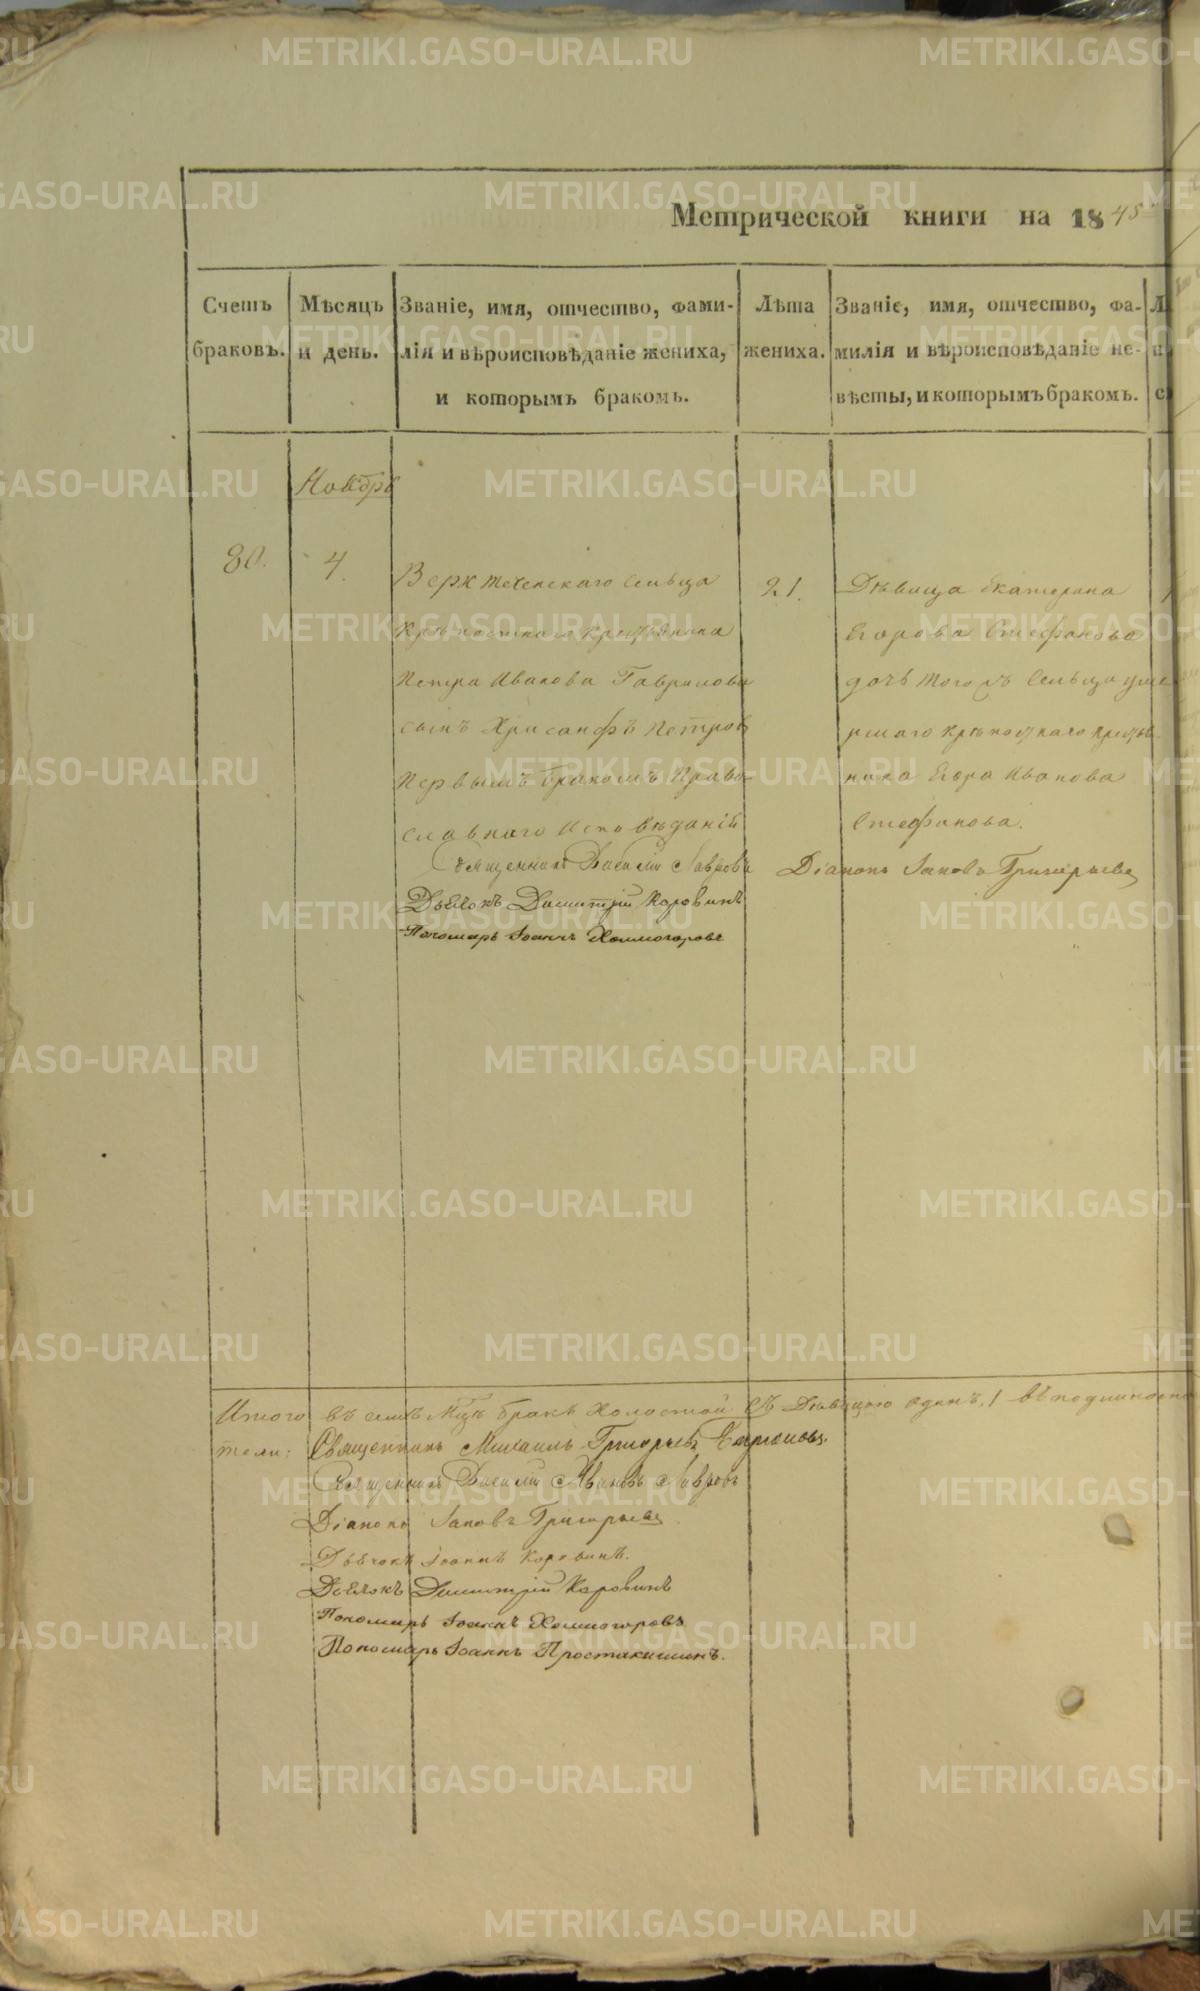 Метрической книги на 1845
Счетъ браковъ.
Мѣсяцъ и день.
Званіе, имя, отчество, фами-
лія и вѣроисповѣданіе жениха,
и которымъ бракомъ.
Лѣта
жениха.
Званіе, имя, отчество, фа-
милія и вѣроисповѣданіе не-
вѣсты, и которымъ бракомъ.
Ноябрь
80.
4.
Верхтеченскаго Сельца
крѣпостнаго крестьянина
Петра Иванова Гаврилова
сынъ Хрисанфъ Петровъ
Первымъ бракомъ Право-
славнаго Исповѣданій
21.
Дѣвица Екатерина
Егорова Стефанова
дочь того жъ Сельца уме
ршаго крѣпостнаго крестья-
нина Егора Иванова
Стефанова.
Священникъ Василій Лавровъ
Діаконъ Іаковъ Григорьевъ
Дьячокъ Димитрій Коровинъ
Пономарь Іоаннъ Холмогоровъ
Итого въ семъ Мцѣ бракъ Холостой съ Дѣвицею одинъ. 1
тели: Священникъ Михаилъ Григорьевъ
Священникъ Василій Ивановъ Лавровъ
Діаконъ Іаковъ Григорьевъ
Дьячокъ Іоаннъ Коровинъ.
Дьячокъ Димитрій Коровинъ
Пономарь Іоаннъ Холмогоровъ
Пономарь Іоаннъ Простакишинъ.
METRIKI.GASO-URAL.RU